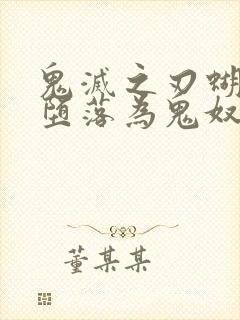 鬼滅之刃蝴
堕落為鬼奴
董某某